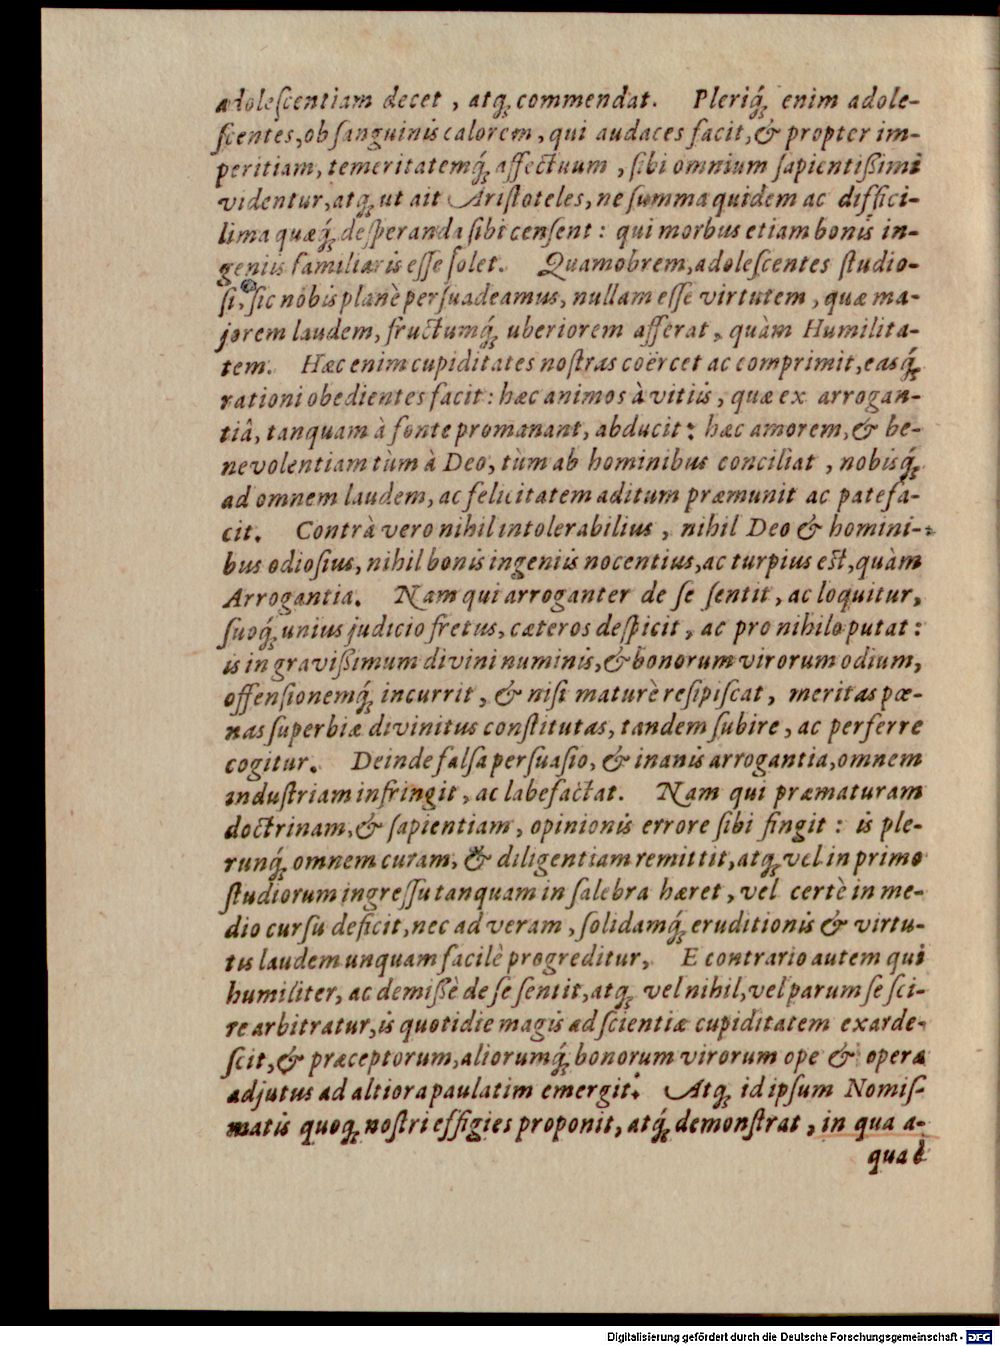 adoleſcentiam decet, atq́; commendat. Pleriq́; enim adole-
ſcentes, ob ſanguinis calorem, qui audaces facit, & propter im-
peritiam, temeritatemq́; affectuum, ſibi omnium ſapientißimi
videntur, atq; ut ait Ariſtoteles, ne ſumma quidem ac diffici-
lima quæq́; deſperanda ſibi cenſent: qui morbus etiam bonis in-
geniis familiaris eſſe ſolet. Quamobrem, adoleſcentes ſtudio-
ſi, ſic nobis planè perſuadeamus, nullam eſſe virtutem, quæ ma-
jorem laudem, fructumq́; uberiorem afferat, quàm Humilita-
tem. Hæc enim cupiditates noſtras coërcet ac comprimit, easq́;
rationi obedientes facit: hæc animos à vitiis, quæ ex arrogan-
tiâ, tanquam à fonte promanant, abducit: hæc amorem, & be-
nevolentiam tùm à Deo, tùm ab hominibus conciliat, nobisq́;
ad omnem laudem, ac felicitatem aditum præmunit ac patefa-
cit. Contrà vero nihil intolerabilius, nihil Deo & homini-
bus odioſius, nihil bonis ingeniis nocentius, ac turpius eſt, quàm
Arrogantia. Nam qui arroganter de ſe ſentit, ac loquitur,
ſuoq́; unius judicio fretus, cæteros deſpicit, ac pro nihilo putat:
is in gravißimum divini numinis, & bonorum virorum odium,
offenſionemq́; incurrit, & niſi maturè reſipiſcat, meritas pœ-
nas ſuperbiæ divinitus conſtitutas, tandem ſubire, ac perferre
cogitur. Deinde falſa perſuaſio, & inanis arrogantia, omnem
induſtriam infringit, ac labefactat. Nam qui præmaturam
doctrinam, & ſapientiam, opinionis errore ſibi fingit: is ple-
runq́; omnem curam, & diligentiam remittit, atq; vel in primo
ſtudiorum ingreſſu tanquam in ſalebra hæret, vel certè in me-
dio curſu deficit, nec ad veram, ſolidamq́; eruditionis & virtu-
tis laudem unquam facilè progreditur. E contrario autem qui
humiliter, ac demißè de ſe ſentit, atq; vel nihil, vel parum ſe ſci-
re arbitratur, is quotidie magis ad ſcientiæ cupiditatem exarde-
ſcit, & præceptorum, aliorumq́; bonorum virorum ope & opera
adjutus ad altiora paulatim emergit. Atq; id ipſum Nomiſ-
matis quoq; noſtri effigies proponit, atq́; demonſtrat, in qua a-
quæ
Digitalisierung gefördert durch die Deutsche Forschungsgemeinschaft - DFG